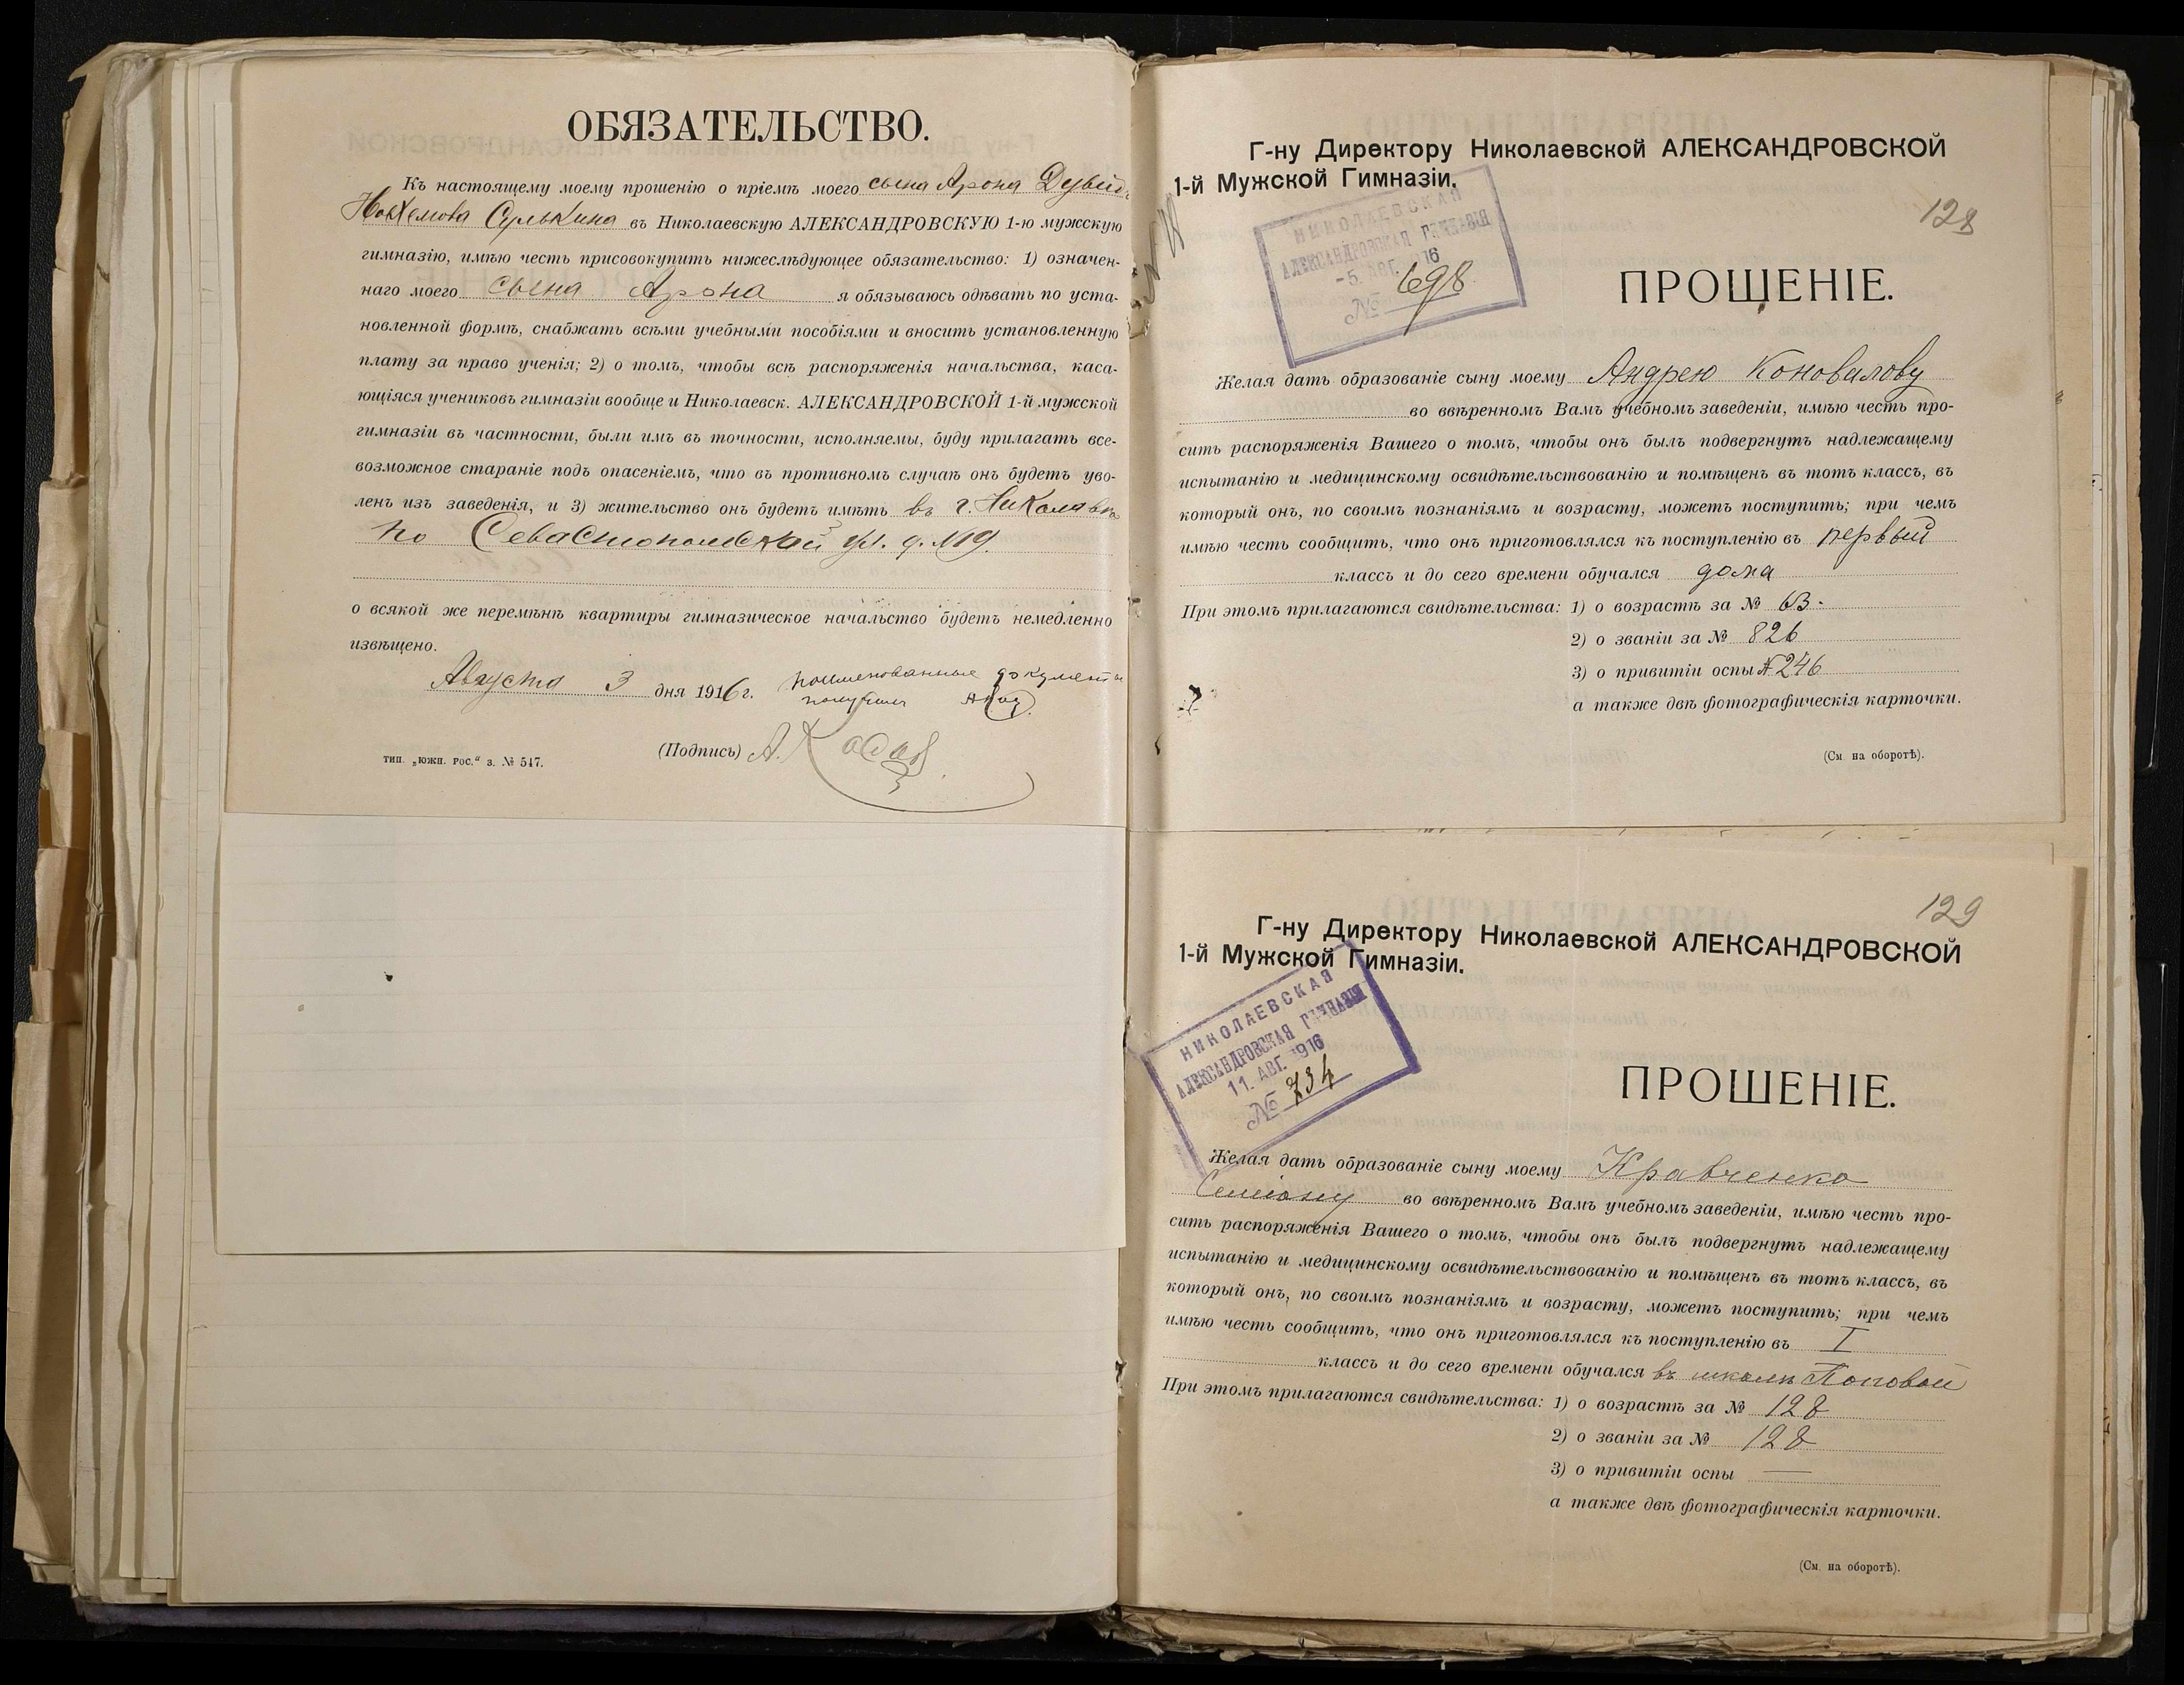 ОБЯЗАТЕЛЬСТВО.
Къ настоящему моему прошенію о пріемѣ моего сына Арона Дувид-
Нохемова Сулькина въ Николаевскую АЛЕКСАНДРОВСКУЮ 1-ю мужскую
гимназію, имѣю честь присовокупить нижеслѣдующее обязательство: 1) означен-
наго моего сына Арона я обязываюсь одѣвать по уста-
новленной формѣ, снабжать всѣми учебными пособіями и вносить установленную
плату за право ученія; 2) о томъ, чтобы всѣ распоряженія начальства, каса-
ющіяся учениковъ гимназіи вообще и Николаевск. АЛЕКСАНДРОВСКОЙ 1-й мужской
гимназіи въ частности, были имъ въ точности, исполняемы, буду прилагать все-
возможное стараніе подъ опасеніемъ, что въ противномъ случаѣ онъ будетъ уво-
ленъ изъ заведенія, и 3) жительство онъ будетъ имѣть въ г. Николаевѣ
по Севастопольской ул. д. №19.
о всякой же перемѣнѣ квартиры гимназическое начальство будетъ немедленно
извѣщено.
Августа 3 дня 1916 г. поименованные документы
получилъ
(Подпись) А.
тип. „южн. рос.“ з. № 547.
128
Г-ну Директору Николаевской АЛЕКСАНДРОВСКОЙ
1-й Мужской Гимназіи.
НИКОЛАЕВСКАЯ
АЛЕКСАНДРОВСКАЯ ГИМНАЗІЯ
-5. АВГ. 1916
№ 698
ПРОШЕНІЕ.
Желая дать образованіе сыну моему Андрею Коновалову
во ввѣренномъ Вамъ учебномъ заведеніи, имѣю честь про-
сить распоряженія Вашего о томъ, чтобы онъ былъ подвергнутъ надлежащему
испытанію и медицинскому освидѣтельствованію и помѣщенъ въ тотъ классъ, въ
который онъ, по своимъ познаніямъ и возрасту, можетъ поступить; при чемъ
имѣю честь сообщить, что онъ приготовлялся къ поступленію въ первый
классъ и до сего времени обучался дома
При этомъ прилагаются свидѣтельства: 1) о возрастѣ за № 63.
2) о званіи за № 826
3) о привитіи оспы № 246
а также двѣ фотографическія карточки.
(См. на оборотѣ).
129
Г-ну Директору Николаевской АЛЕКСАНДРОВСКОЙ
1-й Мужской Гимназіи.
НИКОЛАЕВСКАЯ
АЛЕКСАНДРОВСКАЯ ГИМНАЗІЯ
11. АВГ. 1916
№ 734
ПРОШЕНІЕ.
Желая дать образованіе сыну моему Кравченко
Симіону во ввѣренномъ Вамъ учебномъ заведеніи, имѣю честь про-
сить распоряженія Вашего о томъ, чтобы онъ былъ подвергнутъ надлежащему
испытанію и медицинскому освидѣтельствованію и помѣщенъ въ тотъ классъ, въ
который онъ, по своимъ познаніямъ и возрасту, можетъ поступить; при чемъ
имѣю честь сообщить, что онъ приготовлялся къ поступленію въ I
классъ и до сего времени обучался въ школѣ Поповой
При этомъ прилагаются свидѣтельства: 1) о возрастѣ за № 128
2) о званіи за № 128
3) о привитіи оспы —
а также двѣ фотографическія карточки.
(См. на оборотѣ).